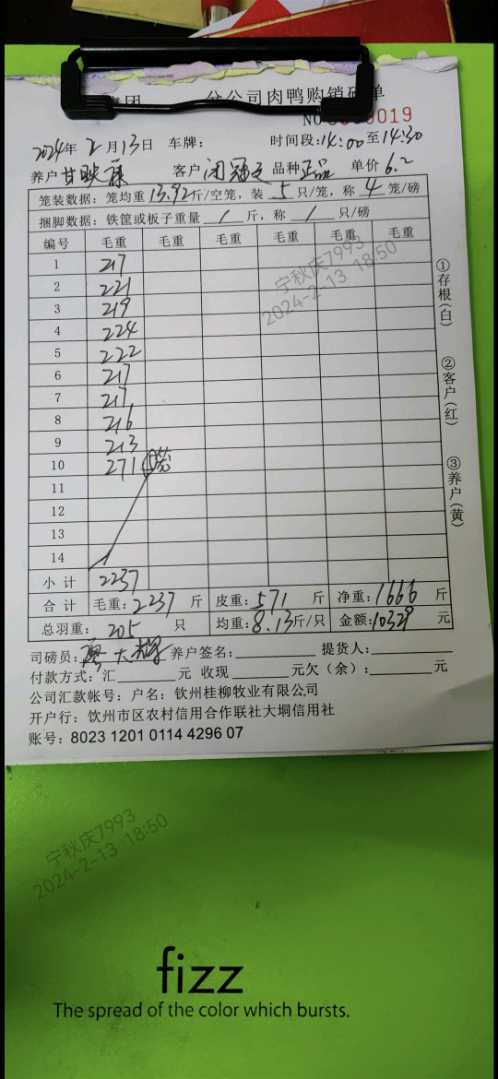 集团 分公司肉鸭购销磅单
NO 0019
2024年2月13日 车牌： 时间段：14：00至14：30
养户 甘映 客户 闭冠之 品种 正品 单价 6.2
笼装数据：笼均重 13.92斤/空笼，装 5 只/笼，称 4 笼/磅
捆脚数据：铁筐或板子重量 / 斤，称 / 只/磅
编号 毛重 毛重 毛重 毛重 毛重 毛重
1 217
2 221
3 219
4 224
5 222
6 217
7 217
8 216
9 213
10 271
11
12
13
14
小计 2237
合计 毛重：2237 斤 皮重：571 斤 净重：1666 斤
总羽重： 205 只 均重：8.13斤/只 金额：10329 元
司磅员： 大 养户签名： 提货人：
付款方式：汇 元 收现 元欠（余）： 元
公司汇款帐号：户名：钦州桂柳牧业有限公司
开户行：钦州市区农村信用合作联社大垌信用社
账号：8023 1201 0114 4296 07
①存根（白）
②客户（红）
③养户（黄）
宁秋庆7993
2024-2-13 18:50
宁秋庆7993
2024-2-13 18:50
fizz
The spread of the color which bursts.